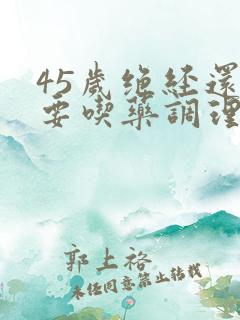 45歲绝经還
要喫藥調理
郭上裕
未经同意禁止转载